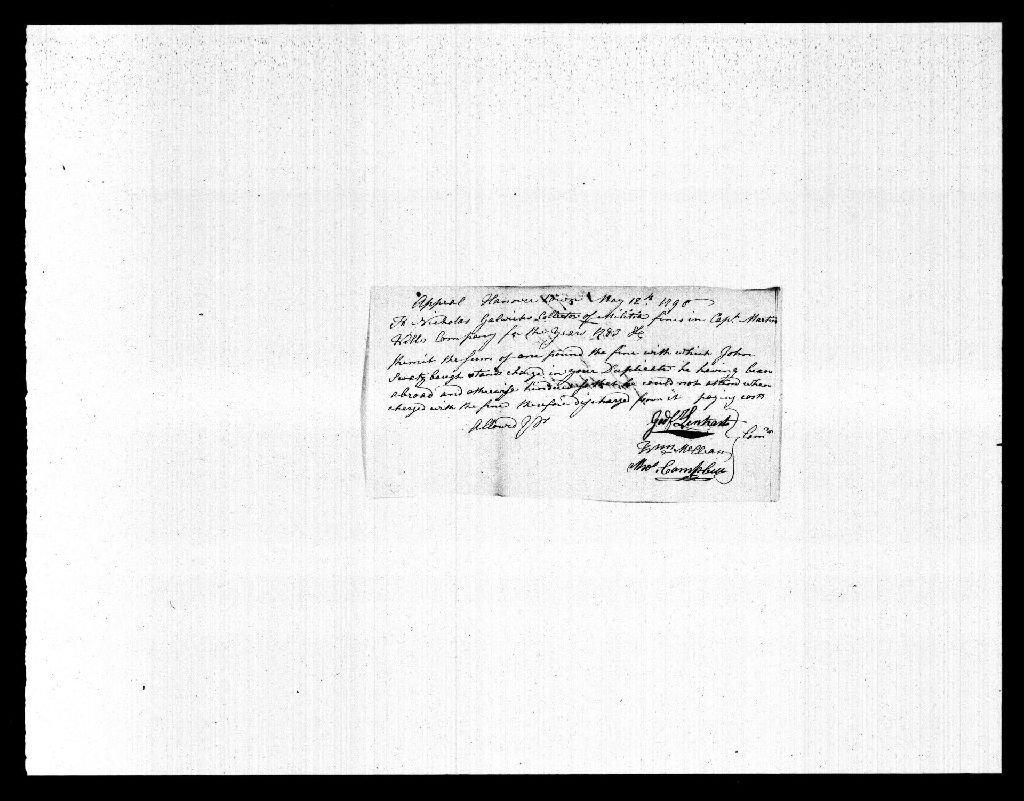 Appeal Hanover Town May 12th 1790
To Nicholas Gelwicks Collector of Militia fines in Capt. Martin
Hills Company for the Year 1783 &c
Remit the sum of one pound the fine with which John
Swartzbaugh stands charg'd in your Duplicate he having been
abroad and otherwise hindred so that he could not attend when
charged with the fine therefore discharged from it paying costs
Allowed
Godf. Lenhart
Wm McClean Comrs
Thos. Campbell